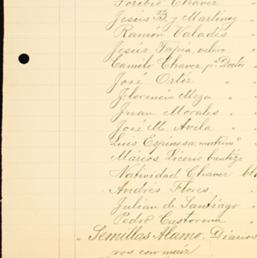 Toribio Chavez "
Jesús B. y Martinez "
Ramón Valadés "
Jesús Tapia, "
Camilo Chavez pr Doctor "
José Ortiz "
Florencio Meza "
Juan Morales "
José M. Avila "
Luis Espinosa "
Márcos Licerio bautizo "
Natividad Chavez
Andrés Flores "
Julian de Santiago "
Pedro Castorena "
" Semillas Alamo. Diarios